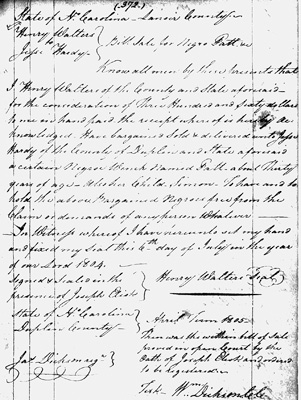 (372)
State of No Carolina - Lenoir County
Henry Walters
to
Jesse Hardy
Bill Sale for Negro Patt &c
Know all men by these presents that
I Henry Walters of the County and State aforesaid
for the consideration of Three Hundred and Sixty dollars
to me in hand paid the receipt whereof is hereby ac
knowledged. Have bargained Sold & delivered unto Jesse
Hardy of the County of Duplin and State aforesaid
a certain Negro Wench Named Patt about Thirty
years of age - Also her Child, Simon. To have and to
hold the above Bargained Negroes free from the
Claim or demands of any person Whatever
In Witness whereof I have hereunto set my hand
and fixed my Seal this 6th day of July in the year
of our Lord 1804.
Signed & Sealed in the
presence of Joseph
Henry Walters Seal
State of No Carolina
Duplin County
April Term 1805
Then was the within bill of Sale
proved in open Court by the
Oath of Joseph and ordered
to be registered
Jas Dickson
Test Wm Dickson